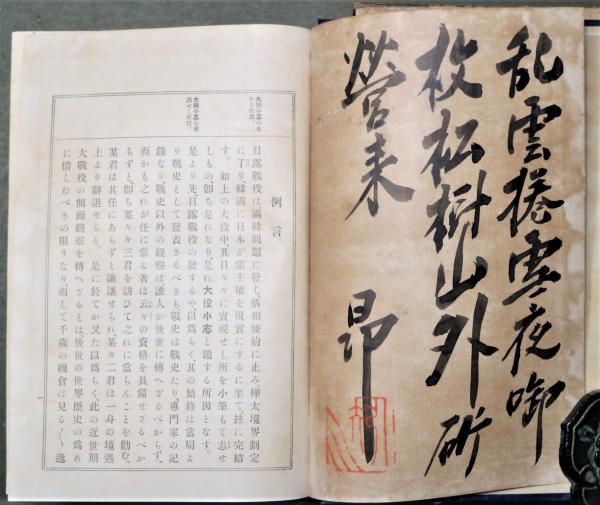 乱雲捲雪夜啣
枚松樹山外斫
營来 昂
大役小志
大役小志を著
述せし所因。
例言
日露戰役は滿韓問題に發し、媾和條約に止み、樺太境界劃定
に了り、韓國に日本が宗主權を現實にするに至て、玆に完結
す。如上の大役中、其日々々に實視せし所を小筆もて志せ
しもの卽ち是れなり、是れ大役小志と題する所因となす。
是より先日露戰役の發するや、以爲らく、其の始終は當局よ
り戰史として發表さるべきも、戰史は戰史たり、專門家の記
錄なり、戰史以外の觀察は、誰人か後世に傳へざるべからず、
而かも之れが任に當る者は云々の資格を具備せざるべか
らずと、卽ち某々々三君を訪ひて之れに當らんことを勸む、
某君は其任にあらずと謙讓せられ、某々二君は一身の境遇
上より辭退せらる。是に於てか又た以爲らく、此の近世期
大戰役の側面觀察を傳へざるとは、後世の世界歷史の爲め
に惜しむべきの限りなり、而して千歲の機會は見る〱逸